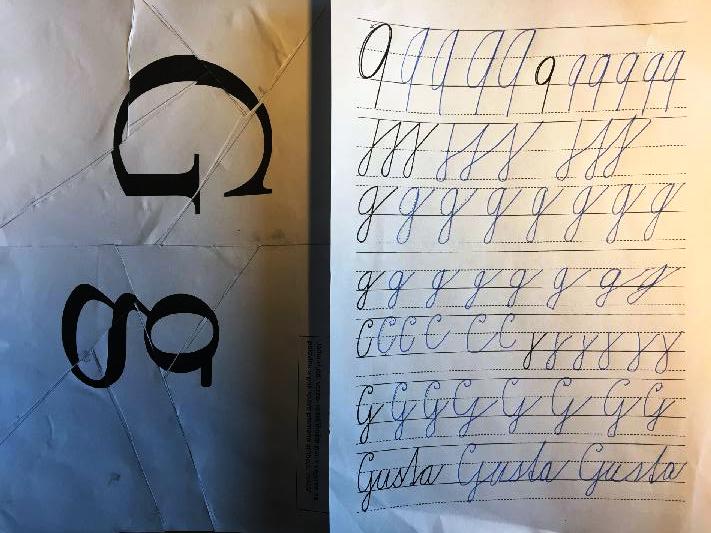 G
g
q q q q q q q q q q q
g g g g g g g g
g g g g g g g g
C C C C C C
G G G G G G G G
Gusta Gusta Gusta